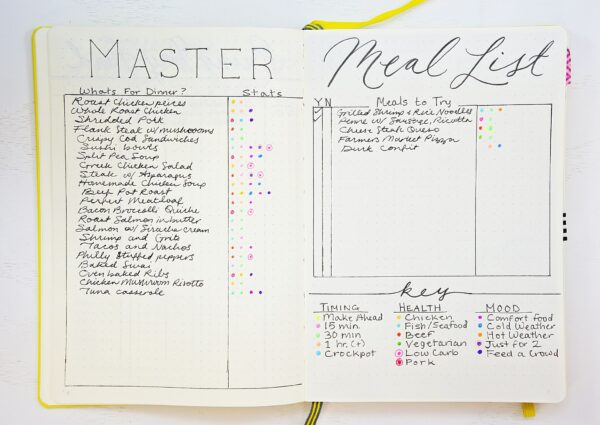 MASTER
Whats For Dinner? Stats
Roast Chicken peices
Whole Roast Chicken
Shredded Pork
Flank Steak w/ mushrooms
Crispy Cod Sandwiches
Sushi bowls
Split Pea Soup
Greek Chicken Salad
Steak w/ Asparagus
Homemade Chicken Soup
Beef Pot Roast
Perfect Meatloaf
Bacon Broccoli Quiche
Roast Salmon in butter
Salmon w/ Siracha cream
Shrimp and Grits
Tacos and Nachos
Philly Stuffed peppers
Baked
Oven baked Ribs
Chicken Mushroom Risotto
Tuna casserole
Meal List
Y N Meals to Try
Grilled Shrimp & Rice Noodles
Penne w/ Sausage, Ricotta
Cheese Steak Queso
Farmers Market Pizza
Duck Confit
key
TIMING
Make Ahead
15 min
30 min
1 hr. (+)
Crockpot
HEALTH
Chicken
Fish/Seafood
Beef
Vegetarian
Low Carb
Pork
MOOD
Comfort food
Cold Weather
Hot Weather
Just for 2
Feed a Crowd